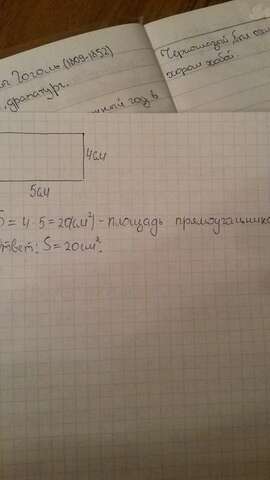 Гоголь (1809-1852)
драматург.
год в
Черноглазой был
хорош собой.
4 см
5 см
S = 4 · 5 = 20(см²) - площадь прямоугольника
ответ: S = 20 см².